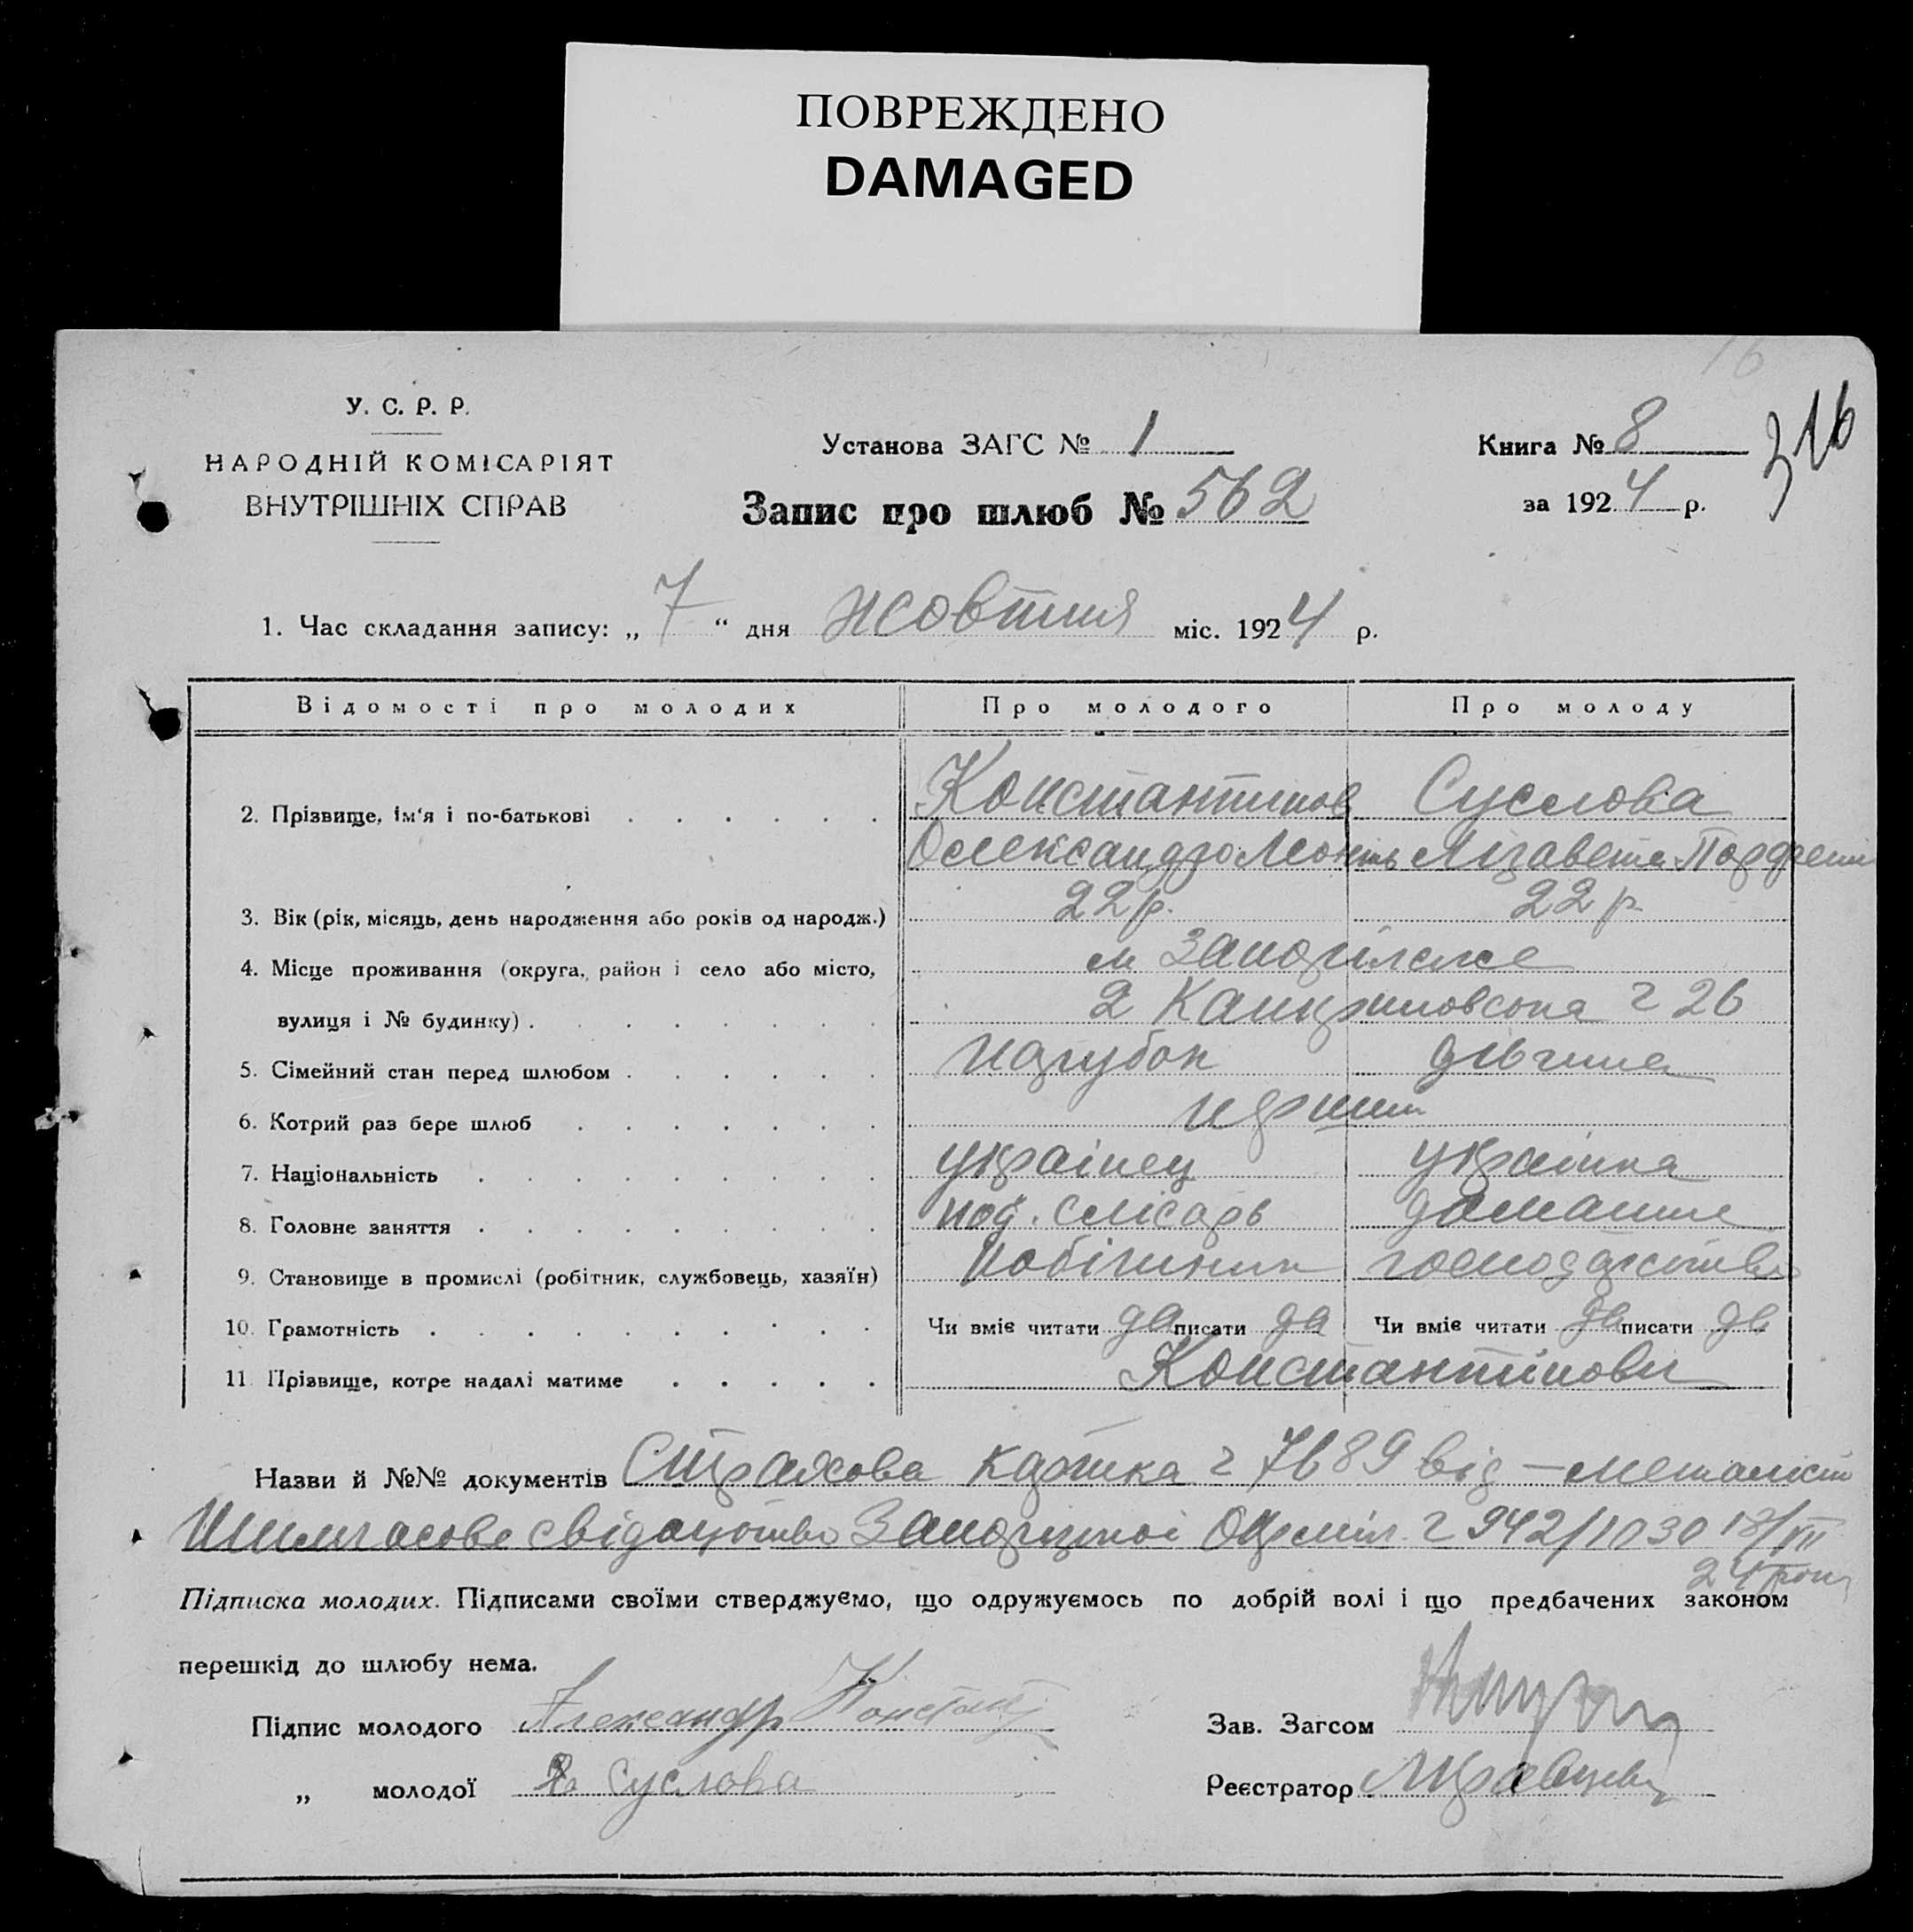 ПОВРЕЖДЕНО
DAMAGED
16
У. С. Р. Р.
НАРОДНІЙ КОМІСАРІЯТ
ВНУТРІШНІХ СПРАВ
Установа ЗАГС № 1
Книга № 8
316
Запис про шлюб № 562
за 1924 р.
1. Час складання запису: „ 7 “ дня жовтня міс. 1924 р.
Відомості про молодих Про молодого Про молоду
2. Прізвище, ім'я і по-батькові Константинов Суслова
Олександр Лізавета
3. Вік (рік, місяць, день народження або років од народж.) 22 р. 22 р.
4. Місце проживання (округа, район і село або місто, м Запоріжже
вулиця і № будинку) 26
5. Сімейний стан перед шлюбом парубок дівчина
6. Котрий раз бере шлюб перший
7. Національність українец українка
8. Головне заняття под. слісарь домашнє
9. Становище в промислі (робітник, службовець, хазяїн) робітник господарство
10. Грамотність Чи вміє читати да писати да Чи вміє читати да писати да
11. Прізвище, котре надалі матиме Константінови
Назви й №№ документів Страхова картка ч 7689 від – металіст
свідоцтво ч 942/1030 18/VII
24 року
Підписка молодих. Підписами своїми стверджуємо, що одружуємось по добрій волі і що предбачених законом
перешкід до шлюбу нема.
Підпис молодого Александр Зав. Загсом
„ молодої Суслова Реєстратор